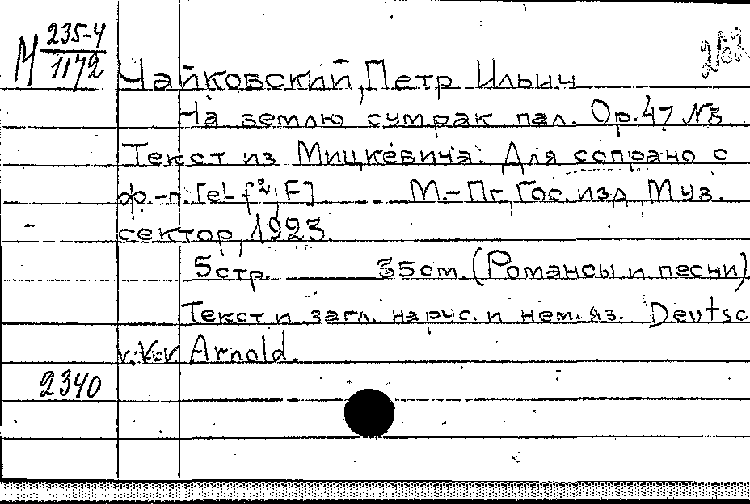 М 235-4
1172
Чайковский, Петр Ильич
На землю сумрак пал. Op.47 №3
Текст из Мицкевича. Для сопрано с
ф.-п. [e¹-f², F] М.-Пг, Гос. изд. Муз.
сектор, 1923.
5 стр. 35 cm. (Романсы и песни)
Текст и загл. на рус. и нем. яз. Deutsc
v. Arnold.
2340